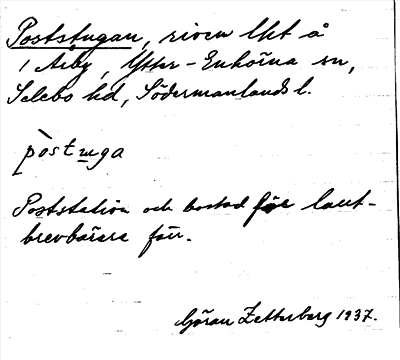 Poststugan, riven lht å
i Åby, Ytter-Enhörna sn,
Selebo hd, Södermanlands l.
pòstuga
Poststation och bostad för lant-
brevbärare förr.
Göran Zetterberg 1937.